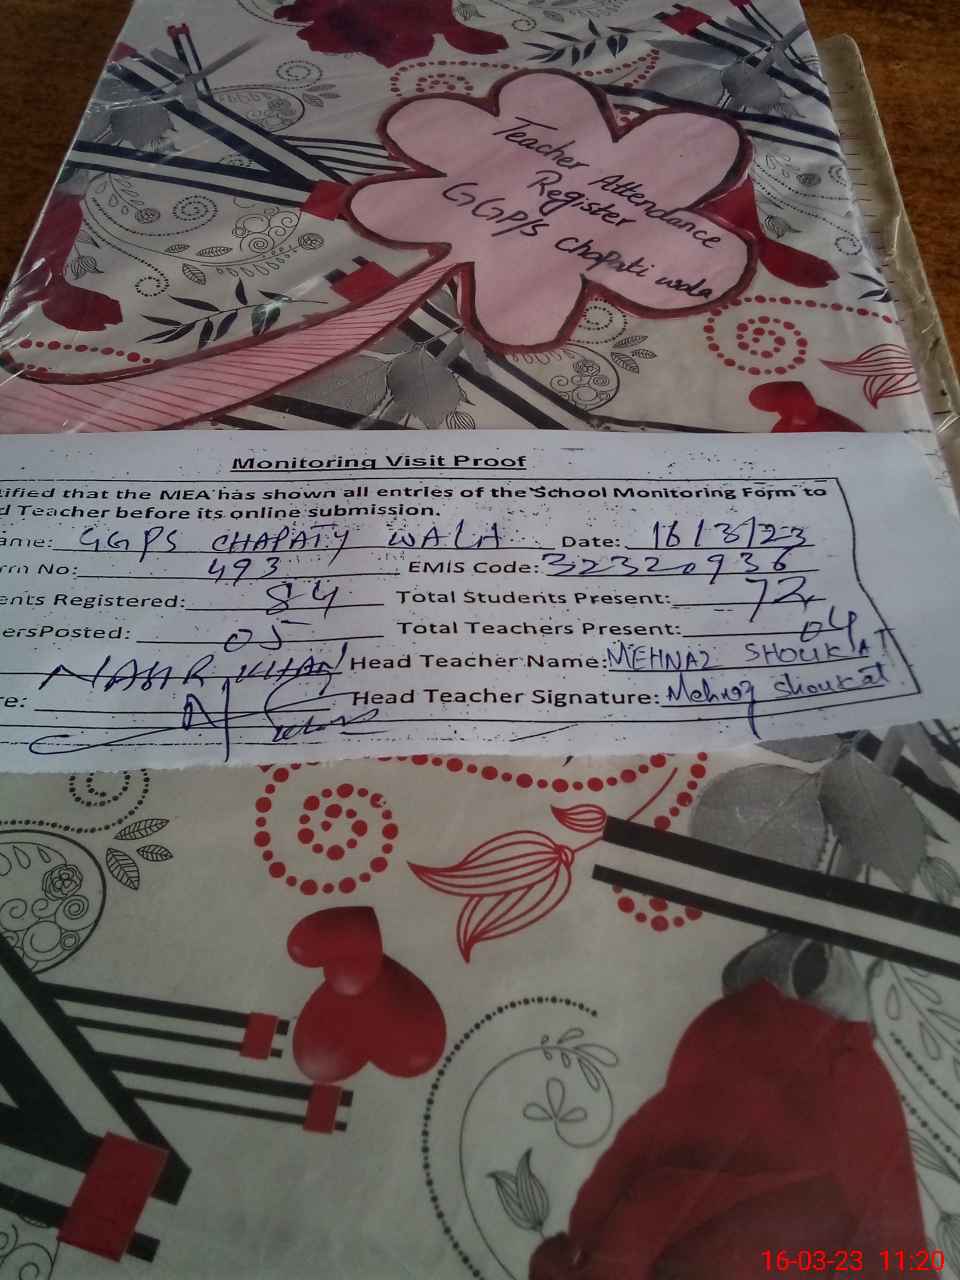 Teacher Attendance
Register
GGPS Chapati wala
Monitoring Visit Proof
ified that the MEA has shown all entries of the School Monitoring Form to
d Teacher before its online submission.
ame: GGPS CHAPATY WALA Date: 16/3/23
rm No: 493 EMIS Code: 32320936
ents Registered: 84 Total Students Present: 72
ersPosted: 05 Total Teachers Present: 04
NASIR KHAN Head Teacher Name: MEHNAZ SHOUKAT
e: Head Teacher Signature: Mehnaz Shoukat
16-03-23 11:20